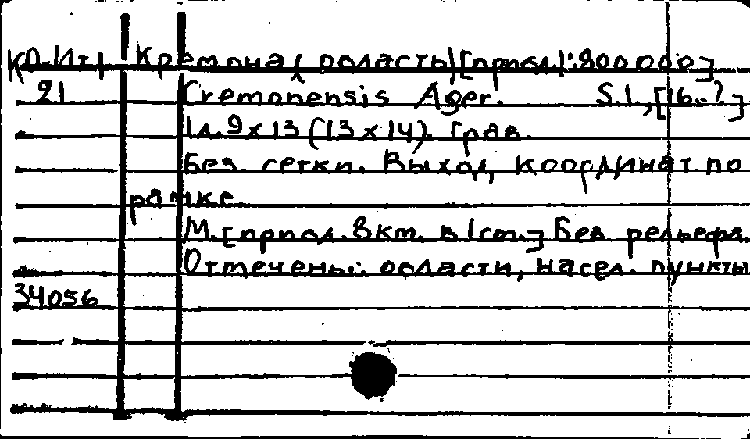 КО.Ит/ Кремона (область) [прибл. 1:800 000]
21 Cremonensis Ager. S.l., [16..?]
1 л. 9 x 13 (13 x 14). Грав.
Без сетки. Выход. координат по
рамке.
М. [прибл. 8 км. в 1 см.] Без рельефа.
Отмечены: области, насел. пункты
34056